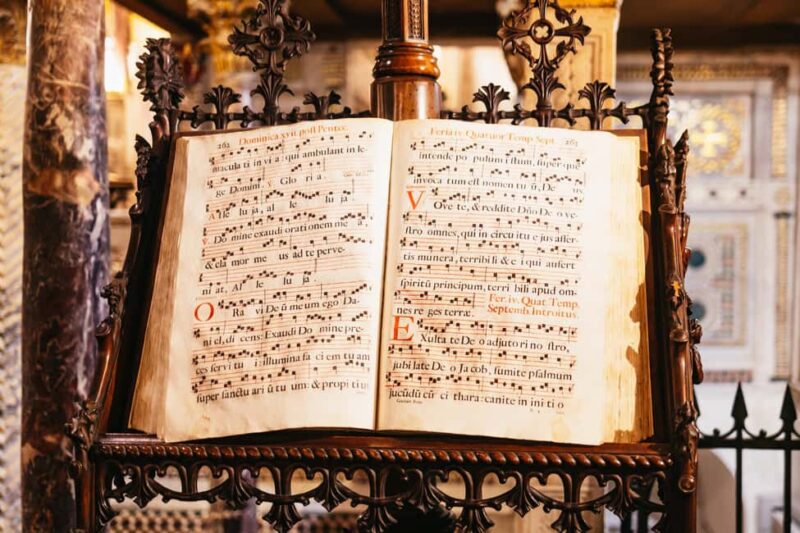 262 Dominica xvii. post Pentec.
macula ti in vi a: qui ambulant in le-
ge Domini. ℣ Glo ri a.
Al le lu ja, al le lu ja.
℣. Do mine exaudi orati onem me a
& cla mor me us ad te perve-
ni at, Al le lu ja.
O Ra vi De ū me um ego Da-
ni el, di cens: Exaudi Do mine pre-
ces servi tu i: illumina fa ci em tu am
super sanctu ari ū tu um: & propi ti us
Feria iv. Quatuor Temp. Sept. 263
intende po pulum istum, super que
invoca tum est nomen tu ū, De us.
V Ove te, & reddite Dño De o ve-
stro omnes, qui in circu itu e jus affer-
tis munera, terribi li & e i qui aufert
spiritū principum, terri bili apud om-
nes re ges terræ. Fer. iv. Quat. Temp.
Septemb. Introitus.
E Xulta te De o adjutori no stro,
jubi late De o Ja cob, sumite psalmum
jucūdū cū ci thara: canite in ini ti o